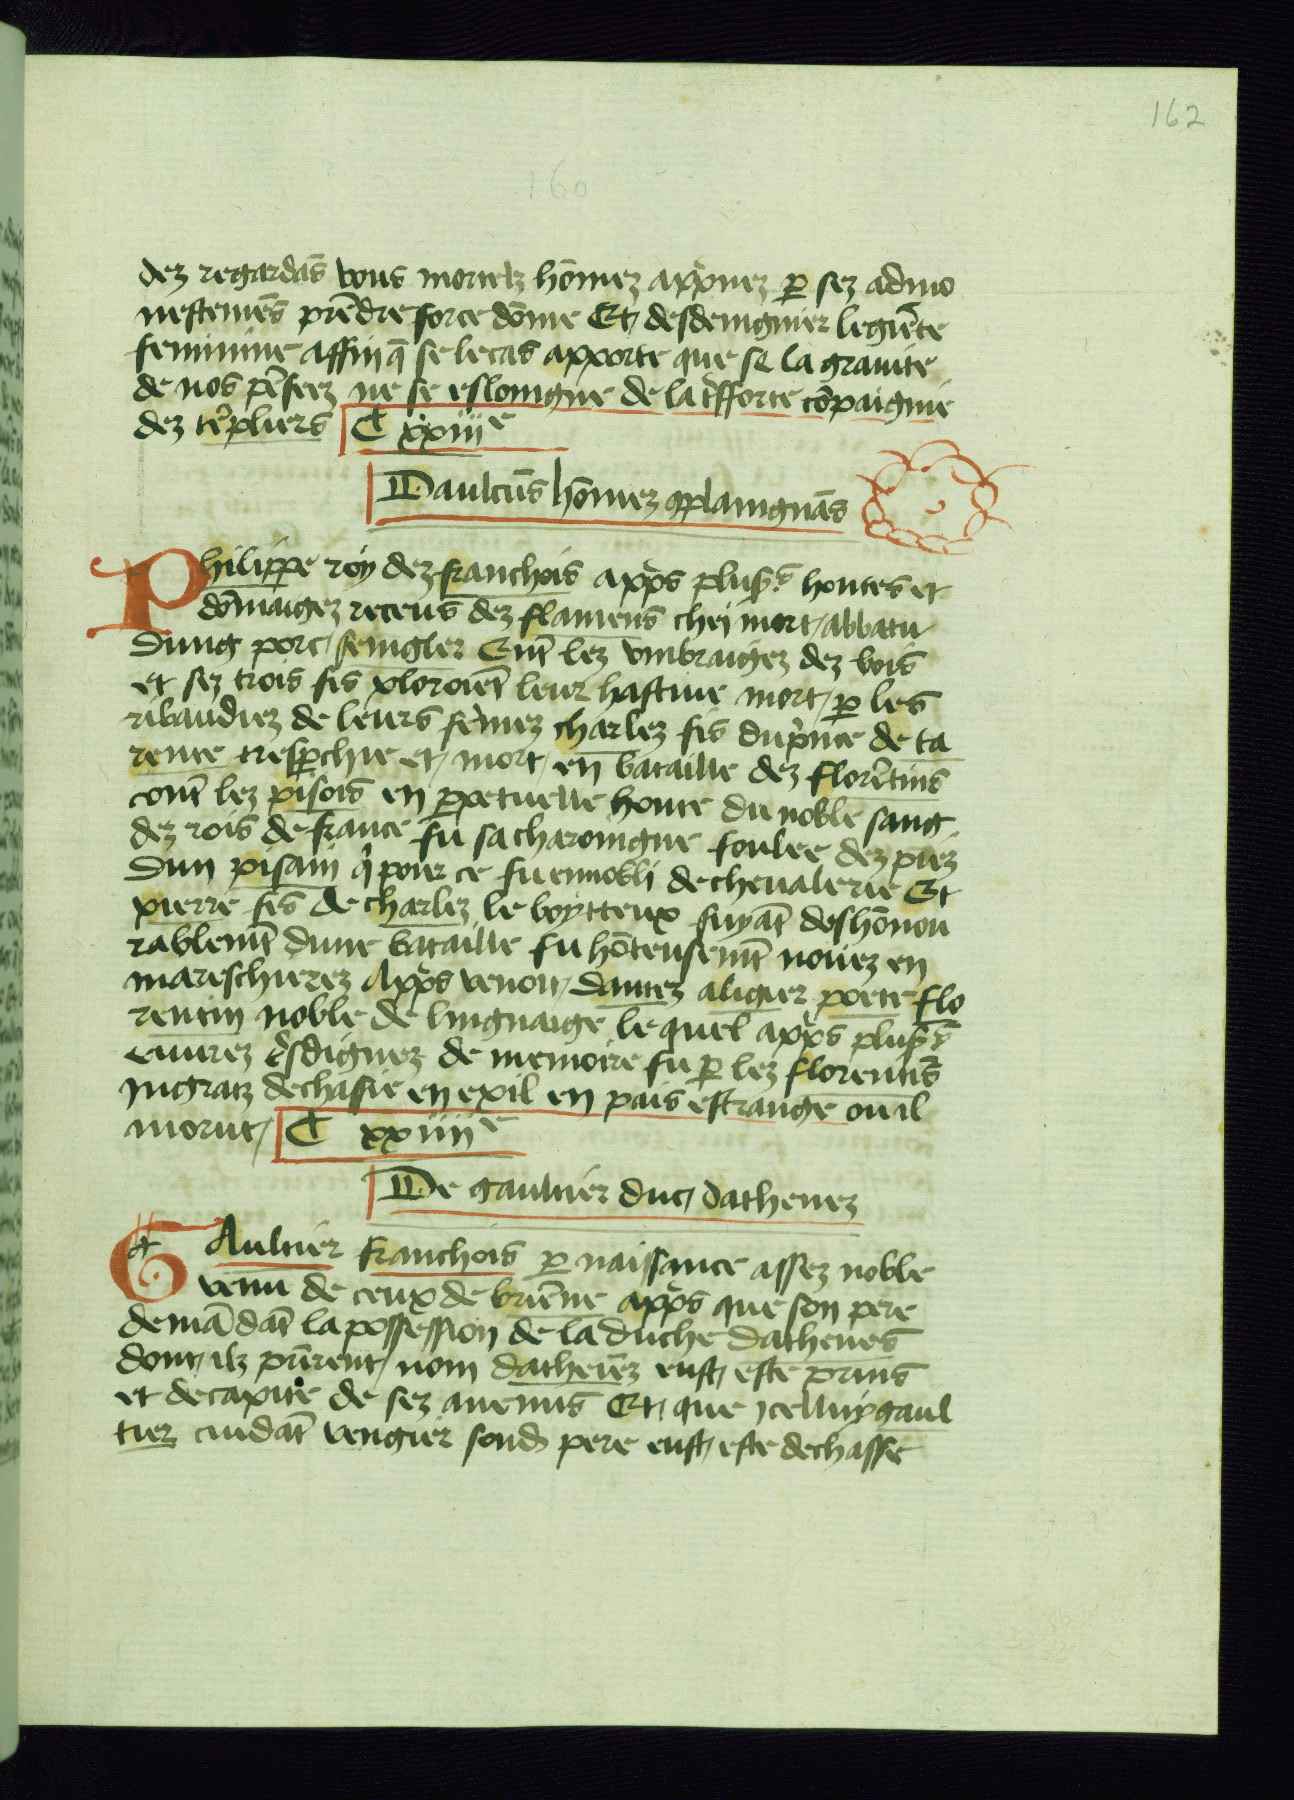 162
160
dez regardãs vous mortelz hõmez appnez p sez admo
nestemẽs prẽdre force dõme Et desdengnier legiẽte
feminine affin q̃ se le cas apporte que se la grauite
de nos pẽseez ne se eslongne de la tsforte cõpaignie
dez tẽpliers C xxiiiᵉ
Daulcũs hõmez cplaingnãs
Philippe roy dez franchois apps plusrs hontes et
dõmaigez receus dez flamens chei mort abbatu
dung porc sengler Entͤ lez vmbraigez dez bois
et sez trois fis ploroiẽt leur hastiue mort p les
ribaudiez de leurs fẽmez charlez fis du pͥnce de ta
rente tresperchie et mort en bataille dez florẽtins
contͤ lez pisois en ppetuelle honte du noble sang
dez rois de france fu sa charoingne foulee dez piez
dun pisain qͥ pour ce fu ennobli de cheualerie Et
pierre fis de charlez le boytteux fuyãt deshõnou
rablemẽt dune bataille fu hõteusemẽt noiez en
mareschierez Appͤs venoit dantez aliguer poete flo
rentin noble de linguaige le quel appͤs plusrs
euurez tͤsdignez de memoire fu p lez florentis
ingratz dechasie en exil en pais estrange ou il
morut C xxiiiiᵉ
De gaultier duc dathenez
GAultier franchois p naissance assez noble
venu de ceux de briẽne appͤs que son pere
demãdãt la possession de la duche dathenes
dont ilz prirent nom dathenez eust este prins
et decapite de sez anemis Et que icelluy gaul
tier cuidãt vengier sond pere eust este dechasse